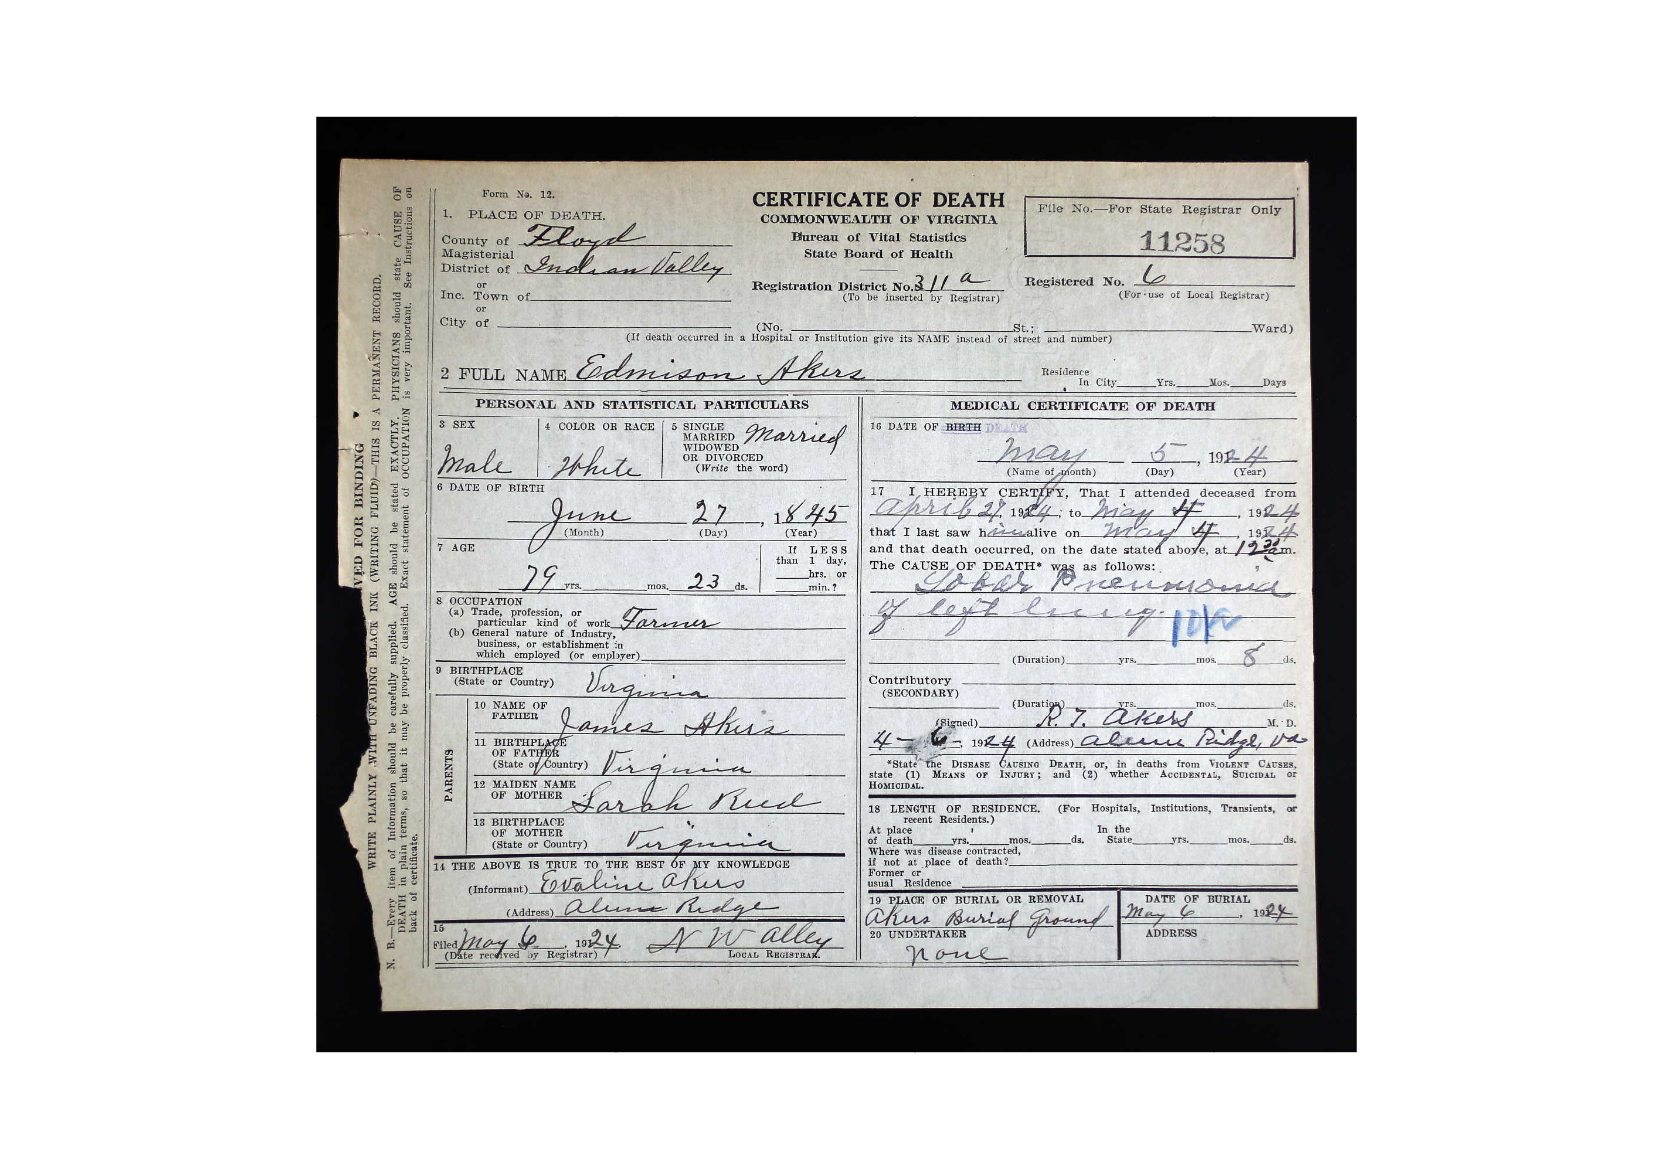 Form No. 12.
CERTIFICATE OF DEATH
COMMONWEALTH OF VIRGINIA
Bureau of Vital Statistics
State Board of Health
File No.—For State Registrar Only
11258
1. PLACE OF DEATH.
County of Floyd
Magisterial
District of Indian Valley
or
Inc. Town of
or
City of
Registration District No. 311 a
(To be inserted by Registrar)
Registered No. 6
(For use of Local Registrar)
(No. St.; Ward)
(If death occurred in a Hospital or Institution give its NAME instead of street and number)
2 FULL NAME Edmison Akers
Residence
In City Yrs. Mos. Days
PERSONAL AND STATISTICAL PARTICULARS
3 SEX
Male
4 COLOR OR RACE
White
5 SINGLE
MARRIED
WIDOWED
OR DIVORCED
(Write the word)
Married
6 DATE OF BIRTH
June 27, 1845
(Month) (Day) (Year)
7 AGE
79 yrs. mos. 23 ds.
If LESS
than 1 day,
hrs. or
min.?
8 OCCUPATION
(a) Trade, profession, or
particular kind of work Farmer
(b) General nature of Industry,
business, or establishment in
which employed (or employer)
9 BIRTHPLACE
(State or Country) Virginia
PARENTS
10 NAME OF
FATHER James Akers
11 BIRTHPLACE
OF FATHER
(State or Country) Virginia
12 MAIDEN NAME
OF MOTHER Sarah Reed
13 BIRTHPLACE
OF MOTHER
(State or Country) Virginia
14 THE ABOVE IS TRUE TO THE BEST OF MY KNOWLEDGE
(Informant) Evaline Akers
(Address) Alum Ridge
15
Filed May 6, 1924 N W Alley
(Date received by Registrar) LOCAL REGISTRAR.
MEDICAL CERTIFICATE OF DEATH
16 DATE OF BIRTH DEATH
May 5, 1924
(Name of month) (Day) (Year)
17 I HEREBY CERTIFY, That I attended deceased from
April 27, 1924, to May 4, 1924
that I last saw him alive on May 4, 1924
and that death occurred, on the date stated above, at 12 30 am.
The CAUSE OF DEATH* was as follows:
Lobar Pneumonia
of left lung.
(Duration) yrs. mos. 8 ds.
Contributory
(SECONDARY)
(Duration) yrs. mos. ds.
(Signed) R. T. Akers M. D.
4-6, 1924 (Address) Alum Ridge, Va
*State the DISEASE CAUSING DEATH, or, in deaths from VIOLENT CAUSES,
state (1) MEANS OF INJURY; and (2) whether ACCIDENTAL, SUICIDAL or
HOMICIDAL.
18 LENGTH OF RESIDENCE. (For Hospitals, Institutions, Transients, or
recent Residents.)
At place In the
of death yrs. mos. ds. State yrs. mos. ds.
Where was disease contracted,
if not at place of death?
Former or
usual Residence
19 PLACE OF BURIAL OR REMOVAL
Akers Burial Ground
DATE OF BURIAL
May 6, 1924
20 UNDERTAKER
None
ADDRESS
VED FOR BINDING
WRITE PLAINLY WITH UNFADING BLACK INK (WRITING FLUID)—THIS IS A PERMANENT RECORD.
N. B.—Every item of Information should be carefully supplied. AGE should be stated EXACTLY. PHYSICIANS should state CAUSE OF
DEATH in plain terms, so that it may be properly classified. Exact statement of OCCUPATION is very important. See Instructions on
back of certificate.